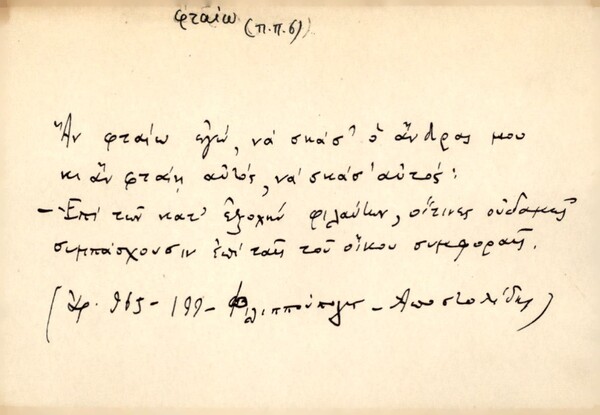 φταίω (π.π.6)
Ἂν φταίω ἐγώ, νὰ σκάσ' ὁ ἄνδρας μου
κι ἂν φταίῃ αὐτός, νὰ σκάσ' αὐτός:
– Ἐπὶ τῶν κατ' ἐξοχὴν φιλαύτων, οἵτινες οὐδαμῶς
συμπάσχουσιν ἐπὶ ταῖς τοῦ οἴκου συμφοραῖς.
(Ἀρ. 965 – 199 – Φιλιππούπολις – Ἀποστολίδης)